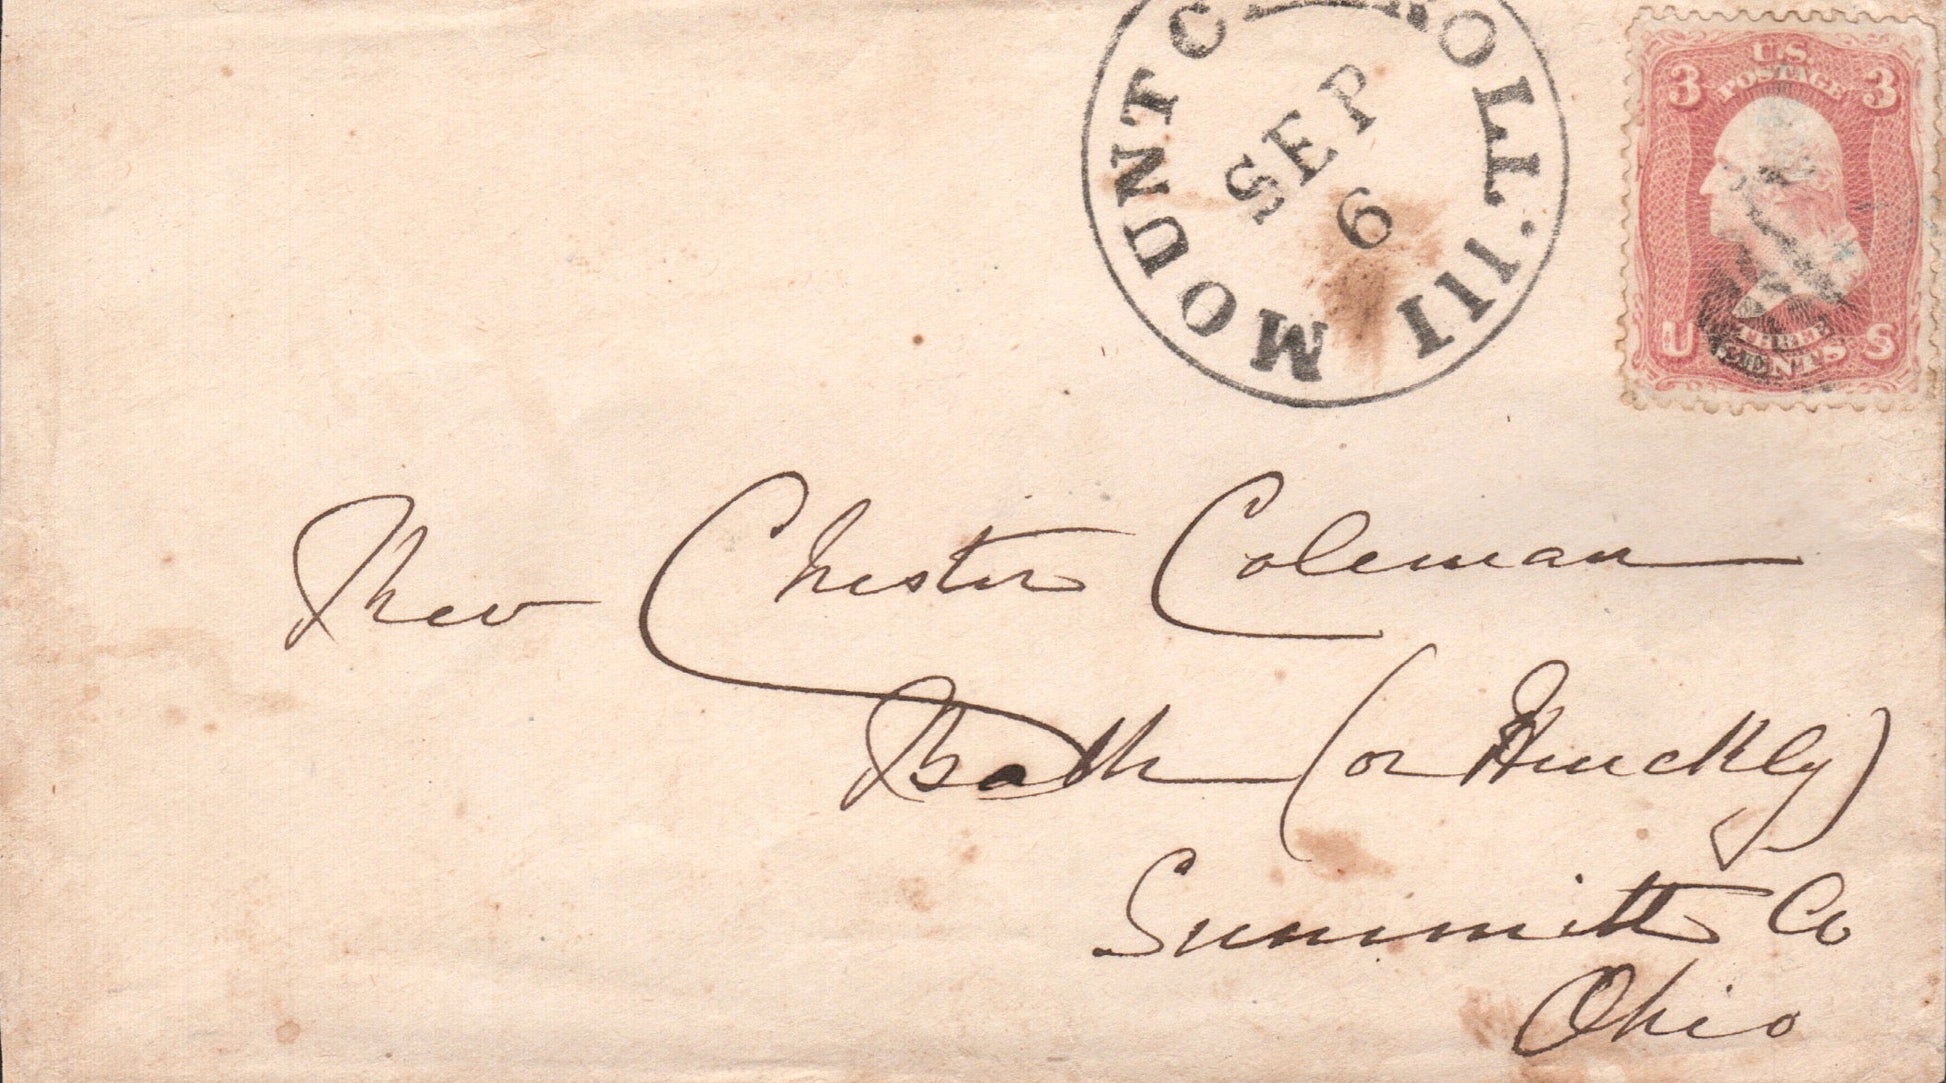 MOUNT CARROLL·Ill
SEP
6
U.S.
POSTAGE
3 3
U THREE S
CENTS
Rev Chester Coleman
Bath (or Hinckly)
Summitt Co
Ohio